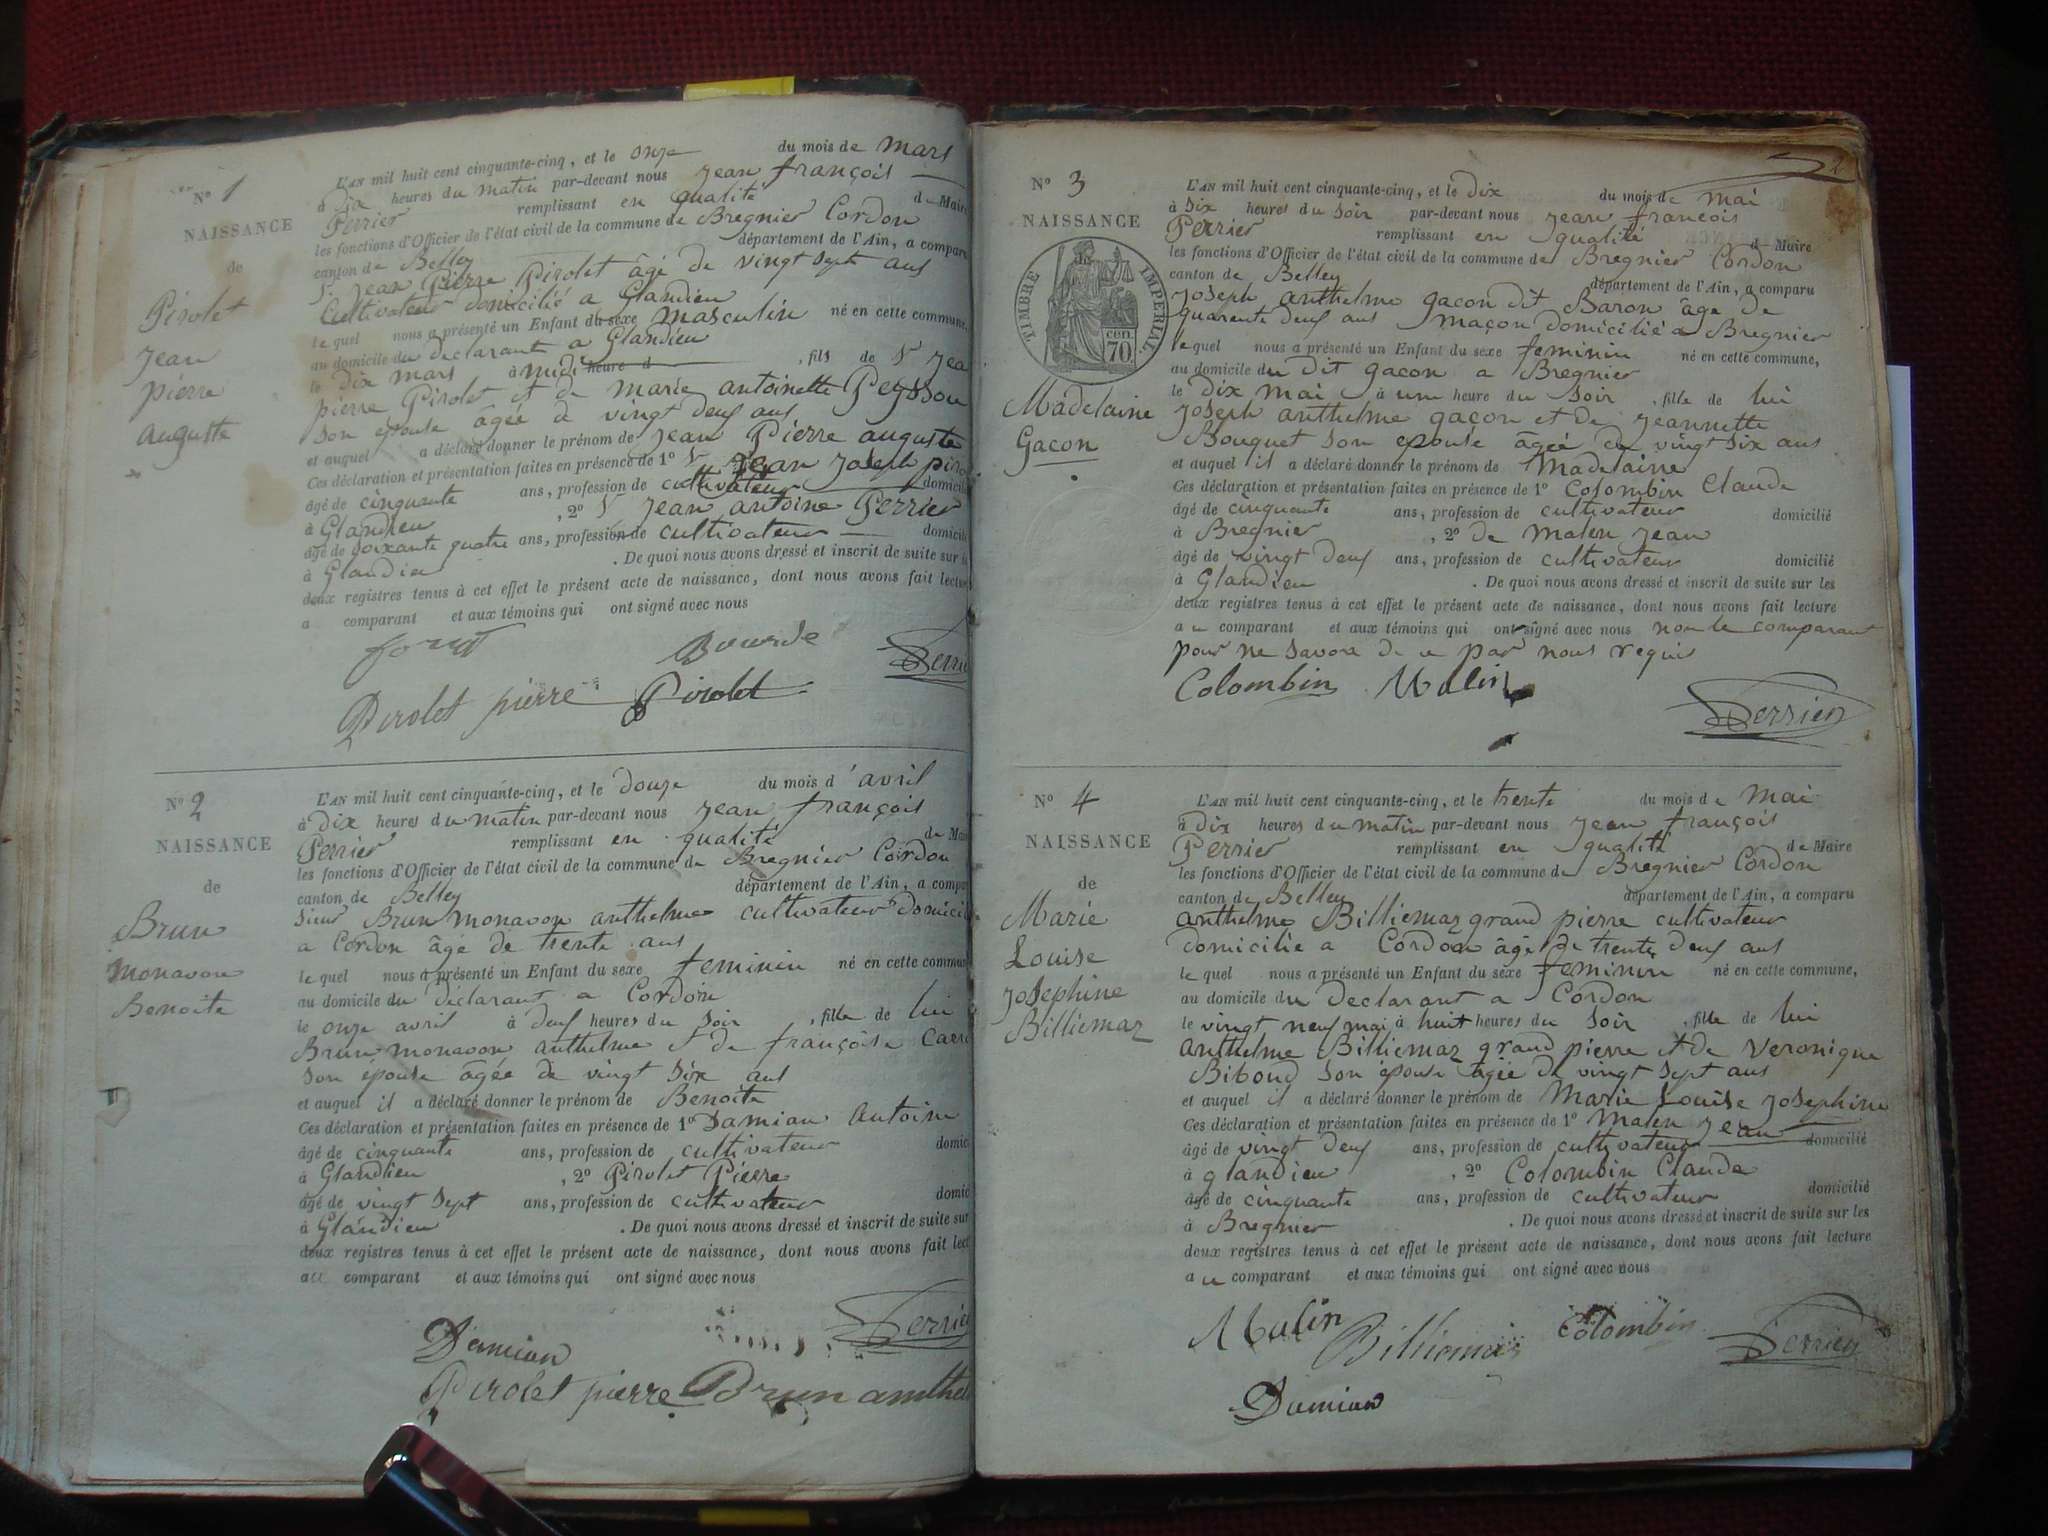 Nº 1
NAISSANCE
de
Pirolet
Jean
pierre
auguste
L'AN mil huit cent cinquante-cinq, et le onze du mois de mars
à dix heures du matin par-devant nous Jean françois
Perrier remplissant en qualité de Maire
les fonctions d'Officier de l'état civil de la commune de Bregnier Cordon
canton de Belley département de l'Ain, a comparu
Sr Jean Pierre Pirolet âgé de vingt sept ans
Cultivateur domicilié a Glandieu
le quel nous a présenté un Enfant du sexe masculin né en cette commune,
au domicile du déclarant a Glandieu
le dix mars à midi heure d , fils de Sr Jea
pierre Pirolet et de marie antoinette Peysson
son epouse âgée de vingt deux ans
et auquel a déclaré donner le prénom de Jean Pierre auguste
Ces déclaration et présentation faites en présence de 1º Sr Jean Joseph piro
âgé de cinquante ans, profession de cultivateur domicilié
à Glandieu , 2º Sr Jean antoine Perrier
âgé de soixante quatre ans, profession de cultivateur domicilié
à Glandieu . De quoi nous avons dressé et inscrit de suite sur
deux registres tenus à cet effet le présent acte de naissance, dont nous avons fait lecture
a comparant et aux témoins qui ont signé avec nous
Pirolet pierre Pirolet
Nº 2
NAISSANCE
de
Brun
monavon
Benoite
L'AN mil huit cent cinquante-cinq, et le douze du mois d'avril
à dix heures du matin par-devant nous Jean françois
Perrier remplissant en qualité de Maire
les fonctions d'Officier de l'état civil de la commune de Bregnier Cordon
canton de Belley département de l'Ain, a comparu
sieur Brun monavon anthelme cultivateur domicil
a Cordon âgé de trente ans
le quel nous a présenté un Enfant du sexe feminin né en cette commune
au domicile du déclarant a Cordon
le onze avril à deux heures du soir , fille de lui
Brun monavon anthelme et de françoise
son epouse âgée de vingt six ans
et auquel il a déclaré donner le prénom de Benoite
Ces déclaration et présentation faites en présence de 1º Damian Antoine
âgé de cinquante ans, profession de cultivateur domic
à Glandieu , 2º Pirolet Pierre
âgé de vingt sept ans, profession de cultivateur domic
à Glandieu . De quoi nous avons dressé et inscrit de suite sur
deux registres tenus à cet effet le présent acte de naissance, dont nous avons fait lect
au comparant et aux témoins qui ont signé avec nous
Perrier
Damian
Pirolet pierre Brun anthel
2
Nº 3
NAISSANCE
TIMBRE IMPERIAL
70 cen.
Madelaine
Gacon
L'AN mil huit cent cinquante-cinq, et le dix du mois de mai
à six heures du soir par-devant nous Jean françois
Perrier remplissant en qualité de Maire
les fonctions d'Officier de l'état civil de la commune de Bregnier Cordon
canton de Belley département de l'Ain, a comparu
Joseph anthelme gacon dit Baron âgé de
quarente deux ans maçon domicilié a Bregnier
le quel nous a présenté un Enfant du sexe feminin né en cette commune,
au domicile du dit gacon a Bregnier
le dix mai à une heure du soir , fille de lui
Joseph anthelme gacon et de jeannette
Bouquet son epouse âgée de vingt six ans
et auquel il a déclaré donner le prénom de Madelaine
Ces déclaration et présentation faites en présence de 1º Colombin Claude
âgé de cinquante ans, profession de cultivateur domicilié
à Bregnier , 2º de Malen Jean
âgé de vingt deux ans, profession de cultivateur domicilié
à Glandieu . De quoi nous avons dressé et inscrit de suite sur les
deux registres tenus à cet effet le présent acte de naissance, dont nous avons fait lecture
au comparant et aux témoins qui ont signé avec nous non le comparant
pour ne savoir de ce par nous requis
Colombin Malin
Perrier
Nº 4
NAISSANCE
de
Marie
Louise
Josephine
Billiemaz
L'AN mil huit cent cinquante-cinq, et le trente du mois de Mai
à dix heures du matin par-devant nous Jean françois
Perrier remplissant en qualité de Maire
les fonctions d'Officier de l'état civil de la commune de Bregnier Cordon
canton de Belley département de l'Ain, a comparu
anthelme Billiemaz grand pierre cultivateur
domicilié a Cordon âgé de trente deux ans
le quel nous a présenté un Enfant du sexe feminin né en cette commune,
au domicile du declarant a Cordon
le vingt neuf mai à huit heures du soir , fille de lui
anthelme Billiemaz grand pierre et de Veronique
Biboud son epouse âgée de vingt sept ans
et auquel il a déclaré donner le prénom de Marie Louise Josephine
Ces déclaration et présentation faites en présence de 1º Malen Jean
âgé de vingt deux ans, profession de cultivateur domicilié
à glandieu , 2º Colombin Claude
âgé de cinquante ans, profession de cultivateur domicilié
à Bregnier . De quoi nous avons dressé et inscrit de suite sur les
deux registres tenus à cet effet le présent acte de naissance, dont nous avons fait lecture
au comparant et aux témoins qui ont signé avec nous
Malin Billiemaz Colombin Perrier
Damian